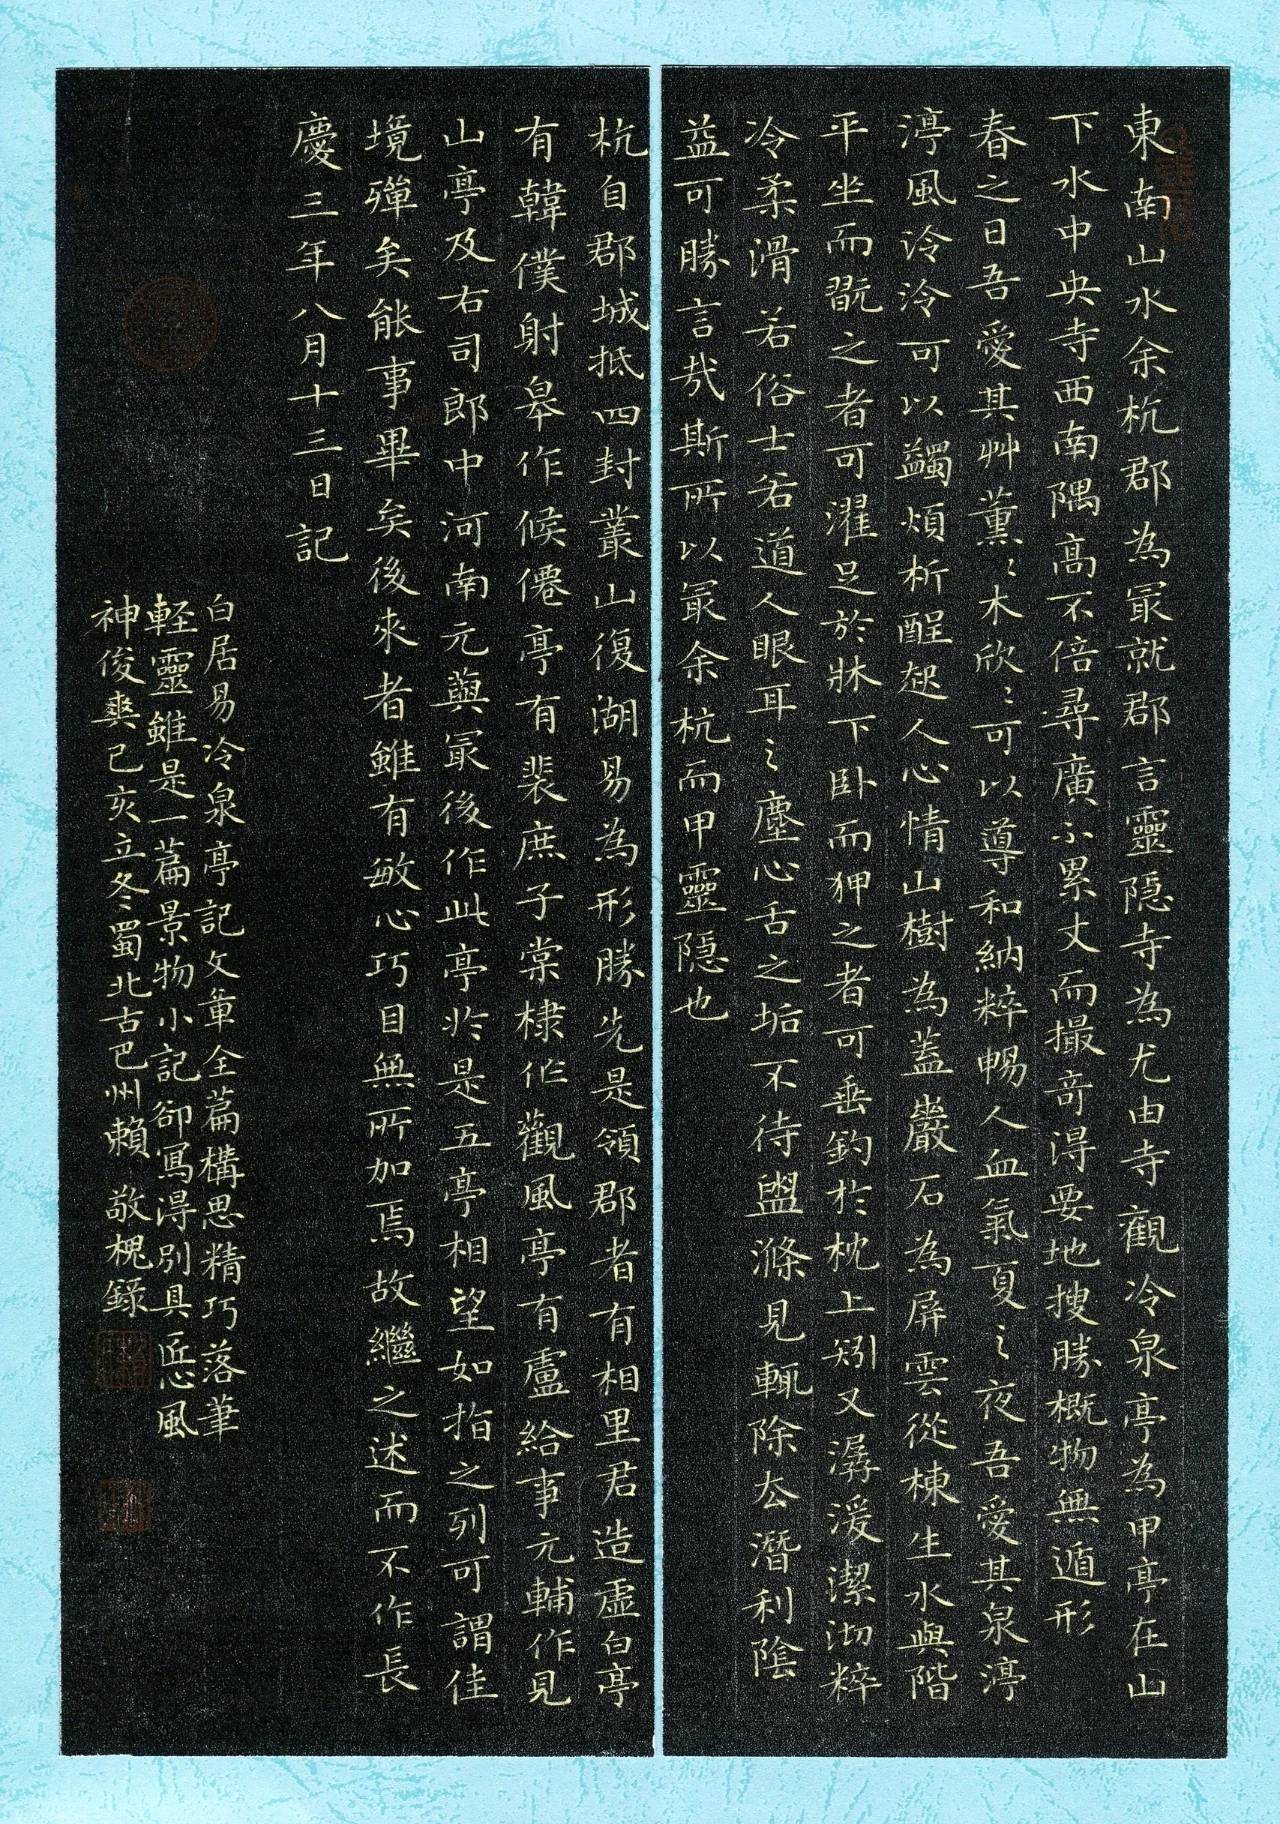 東南山水余杭郡為冣就郡言靈隱寺為尤由寺觀冷泉亭為甲亭在山
下水中央寺西南隅高不倍尋廣不累丈而撮奇得要地搜勝概物無遁形
春之日吾愛其艸薰〻木欣〻可以導和納粹暢人血氣夏之夜吾愛其泉渟
渟風泠泠可以蠲煩析酲起人心情山樹為蓋巖石為屏雲從棟生水與階
平坐而翫之者可濯足於牀下卧而狎之者可垂釣於枕上矧又潺湲潔沏粹
冷柔滑若俗士若道人眼耳之塵心舌之垢不待盥滌見輒除去潛利陰
益可勝言哉斯所以冣余杭而甲靈隱也
杭自郡城抵四封叢山復湖易為形勝先是領郡者有相里君造虛白亭
有韓僕射皋作候僊亭有裴庶子棠棣作觀風亭有盧給事元輔作見
山亭及右司郎中河南元藇冣後作此亭於是五亭相望如指之列可謂佳
境殫矣能事畢矣後來者雖有敏心巧目無所加焉故繼之述而不作長
慶三年八月十三日記
白居易冷泉亭記文章全篇構思精巧落筆
輕靈雖是一篇景物小記卻寫得別具匠心風
神俊爽己亥立冬蜀北古巴州賴敬槐錄